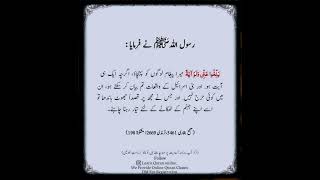 رسول اللہ ﷺ نے فرمایا:
بَلِّغُوا عَنِّي وَلَوْ آيَةً میرا پیغام لوگوں کو پہنچاؤ، اگرچہ ایک ہی
آیت ہو اور بنی اسرائیل کے واقعات تم بیان کر سکتے ہو، ان
میں کوئی حرج نہیں اور جس نے مجھ پر قصداً جھوٹ باندھا تو
اسے اپنے جہنم کے ٹھکانے کے لئے تیار رہنا چاہئے۔
(صحیح بخاری 3461، ترمذی 2669، مشکاۃ 198)
Follow
Learn Quran online
We Provide Online Quran Classes